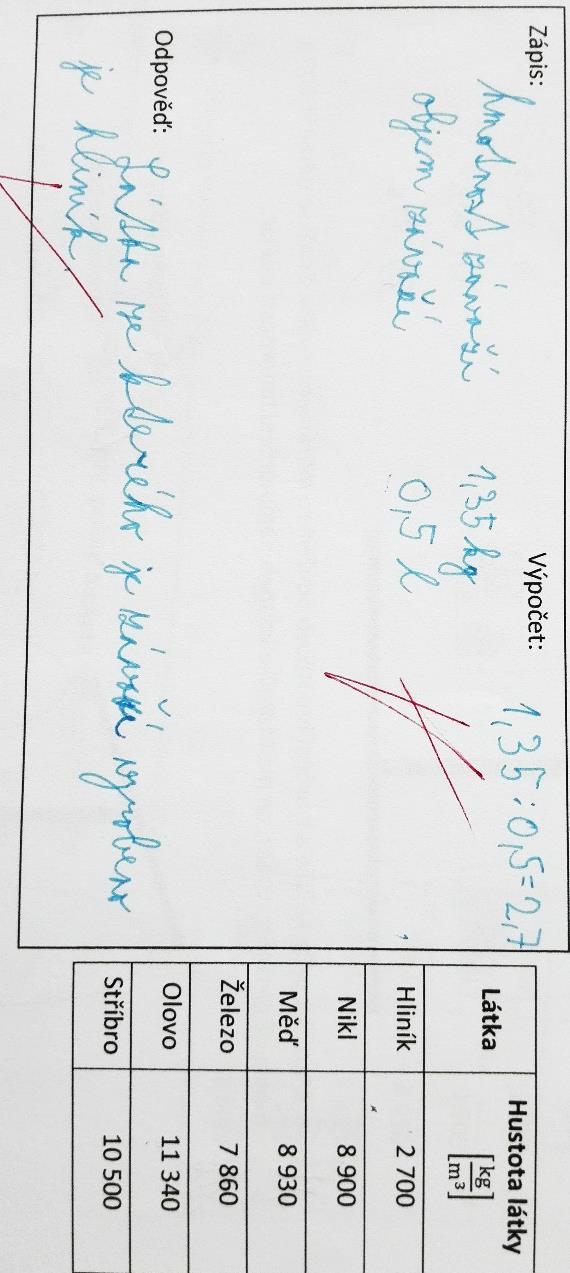 Zápis:
Výpočet:
hmotnost závaží 1,35 kg
1,35 : 0,5 = 2,7
objem závaží 0,5 l
Odpověď: Látka ze kterého je závaží vyrobeno
je hliník
Látka Hustota látky [kg/m³]
Hliník 2 700
Nikl 8 900
Měď 8 930
Železo 7 860
Olovo 11 340
Stříbro 10 500